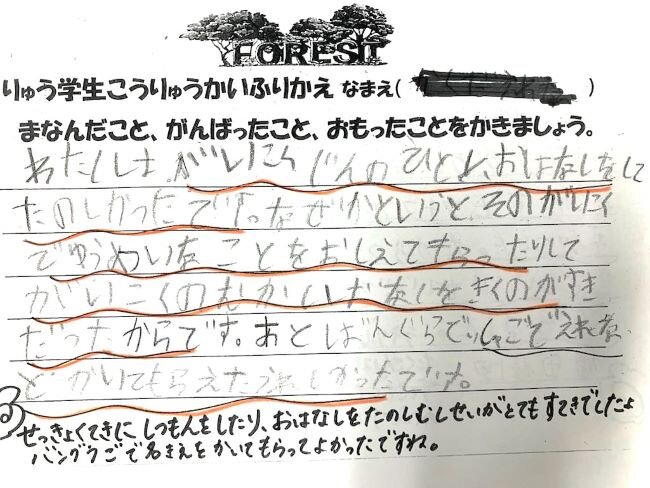 FOREST
りゅう学生こうりゅうかいふりかえ なまえ( )
まなんだこと、がんばったこと、おもったことをかきましょう。
わたしは、がいこくじんのひとと、おはなしをして
たのしかったです。なぜかというと、そのがいこく
でゆうめいなことをおしえてもらったりして
がいこくのむかしばなしをきくのがすき
だったからです。あとばんぐらでぃしゅごでえれな
とかいてもらえたうれしかったです。
せっきょくてきにしつもんをしたり、おはなしをたのしむしせいがとてもすてきでしたよ
バングラごで名まえをかいてもらってよかったですね。